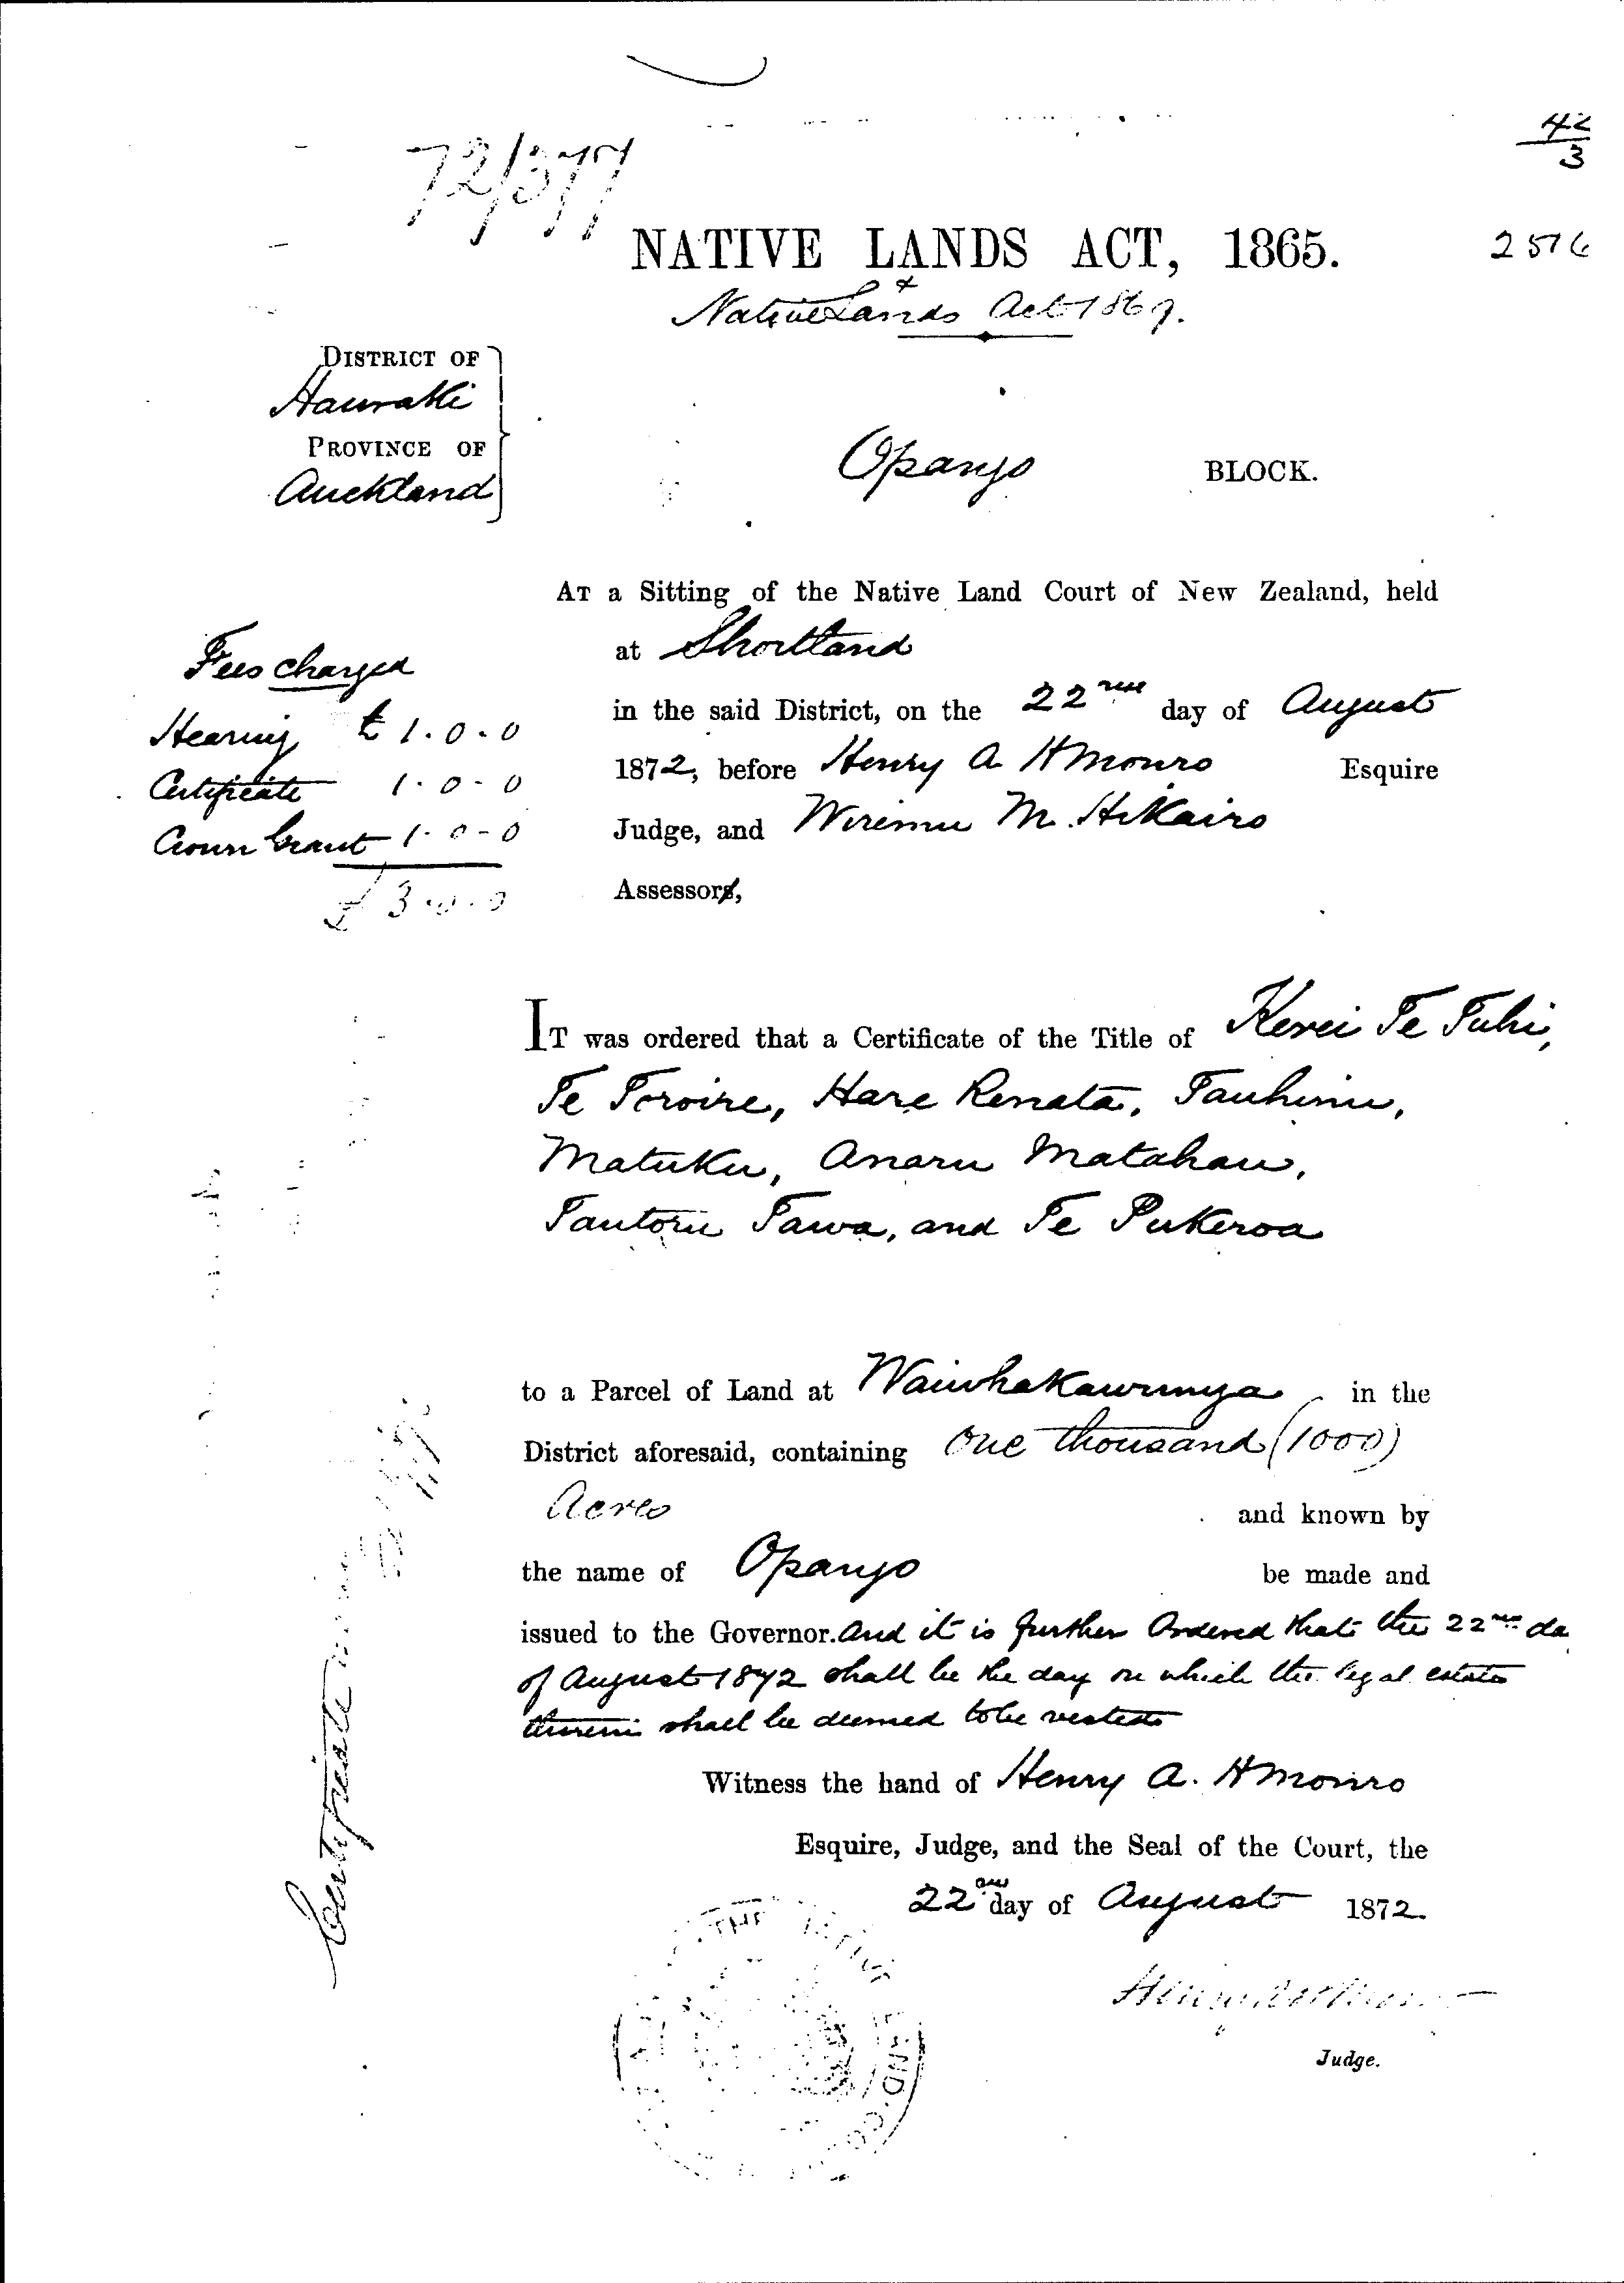 72/377
42
3
NATIVE LANDS ACT, 1865.
2516
& Native Lands Act 1869.
DISTRICT OF
Hauraki
PROVINCE OF
Auckland
Opango BLOCK.
AT a Sitting of the Native Land Court of New Zealand, held
at Shortland
in the said District, on the 22nd day of August
1872, before Henry A H Monro Esquire
Judge, and Wiremu M. Hikairo
Assessors,
Fees charged
Hearing £ 1.0.0
Certificate 1.0-0
Crown Grant 1.0-0
£ 3.0.0
IT was ordered that a Certificate of the Title of Kerei Te Tuhi,
Te Toroire, Hare Renata, Tauhinu,
Matuku, Anaru Matahau,
Tautoru Tawa, and Te Pukeroa
to a Parcel of Land at Waiwhakawrunga in the
District aforesaid, containing One thousand (1000)
Acres and known by
the name of Opango be made and
issued to the Governor. And it is further Ordered that the 22nd da
of August 1872 shall be the day on which the legal estate
therein shall be deemed to be vested
Witness the hand of Henry A. H Monro
Esquire, Judge, and the Seal of the Court, the
22nd day of August 1872.
Judge.
Certificate
THE NATIVE LAND CO